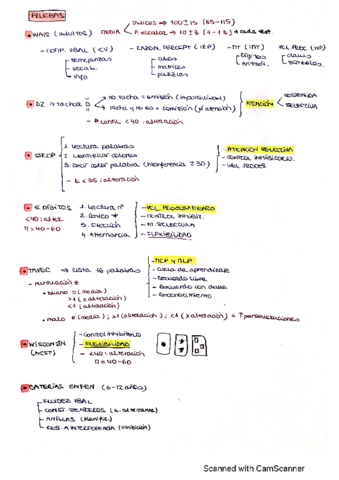 PRUEBAS
WAIS (adultos) MEDIA → Índices → 100±15 (85-115)
→ P. escalar → 10±3 (7-13) → cada test.
- COMP. VBAL (ICV)
semejanzas
vocab.
info
- RAZON. PERCEPT (IRP)
cubos
matrices
puzzles
- MT (IMT)
Dígitos
Aritmét.
VEL. PROC (IVP)
claves
símbolos.
D2 → tachar D
→ no tacha = omisión (impulsividad)
→ tacha = comisión (atención)
ATENCIÓN
SOSTENIDA
SELECTIVA
- P centil < 40 : alteración
STROOP
1. Lectura palabras
2. Identificar colores
3. Decir color palabra (interferencia ±3D)
- t < 35 : alteración
- ATENCIÓN SELECTIVA
- CONTROL INHIBITORIO
- VEL. PROCES.
5 DÍGITOS
<40: alter.
n = 40-60
1. Lectura nº
2. Conteo *
3. Elección
4. Alternancia
- VEL. PROCESAMIENTO
- CONTROL INHIBIT.
- AT. SELECTIVA
- FLEXIBILIDAD
TAVEC → Lista 16 palabras
- MCP y MLP
- curva de aprendizaje
- Recuerdo libre
- Recuerdo con clave
- Reconocimiento
- puntuación z
• bueno 0 (media)
>1 (x alteración)
<1 (alteración)
• malo 0 (media) ; >1 (alteración) ; <1 (x alteración) = ↑ perseveraciones
WISCONSIN
(WCST)
- Control inhibitorio
- FLEXIBILIDAD
- <40: alteración
n = 40-60
BATERÍAS ENFEN (6-12 años)
FLUIDEZ VBAL
CONST. SENDEROS
ANILLAS (Planific.)
RES. A INTERFERENCIA (inhibición)
Scanned with CamScanner